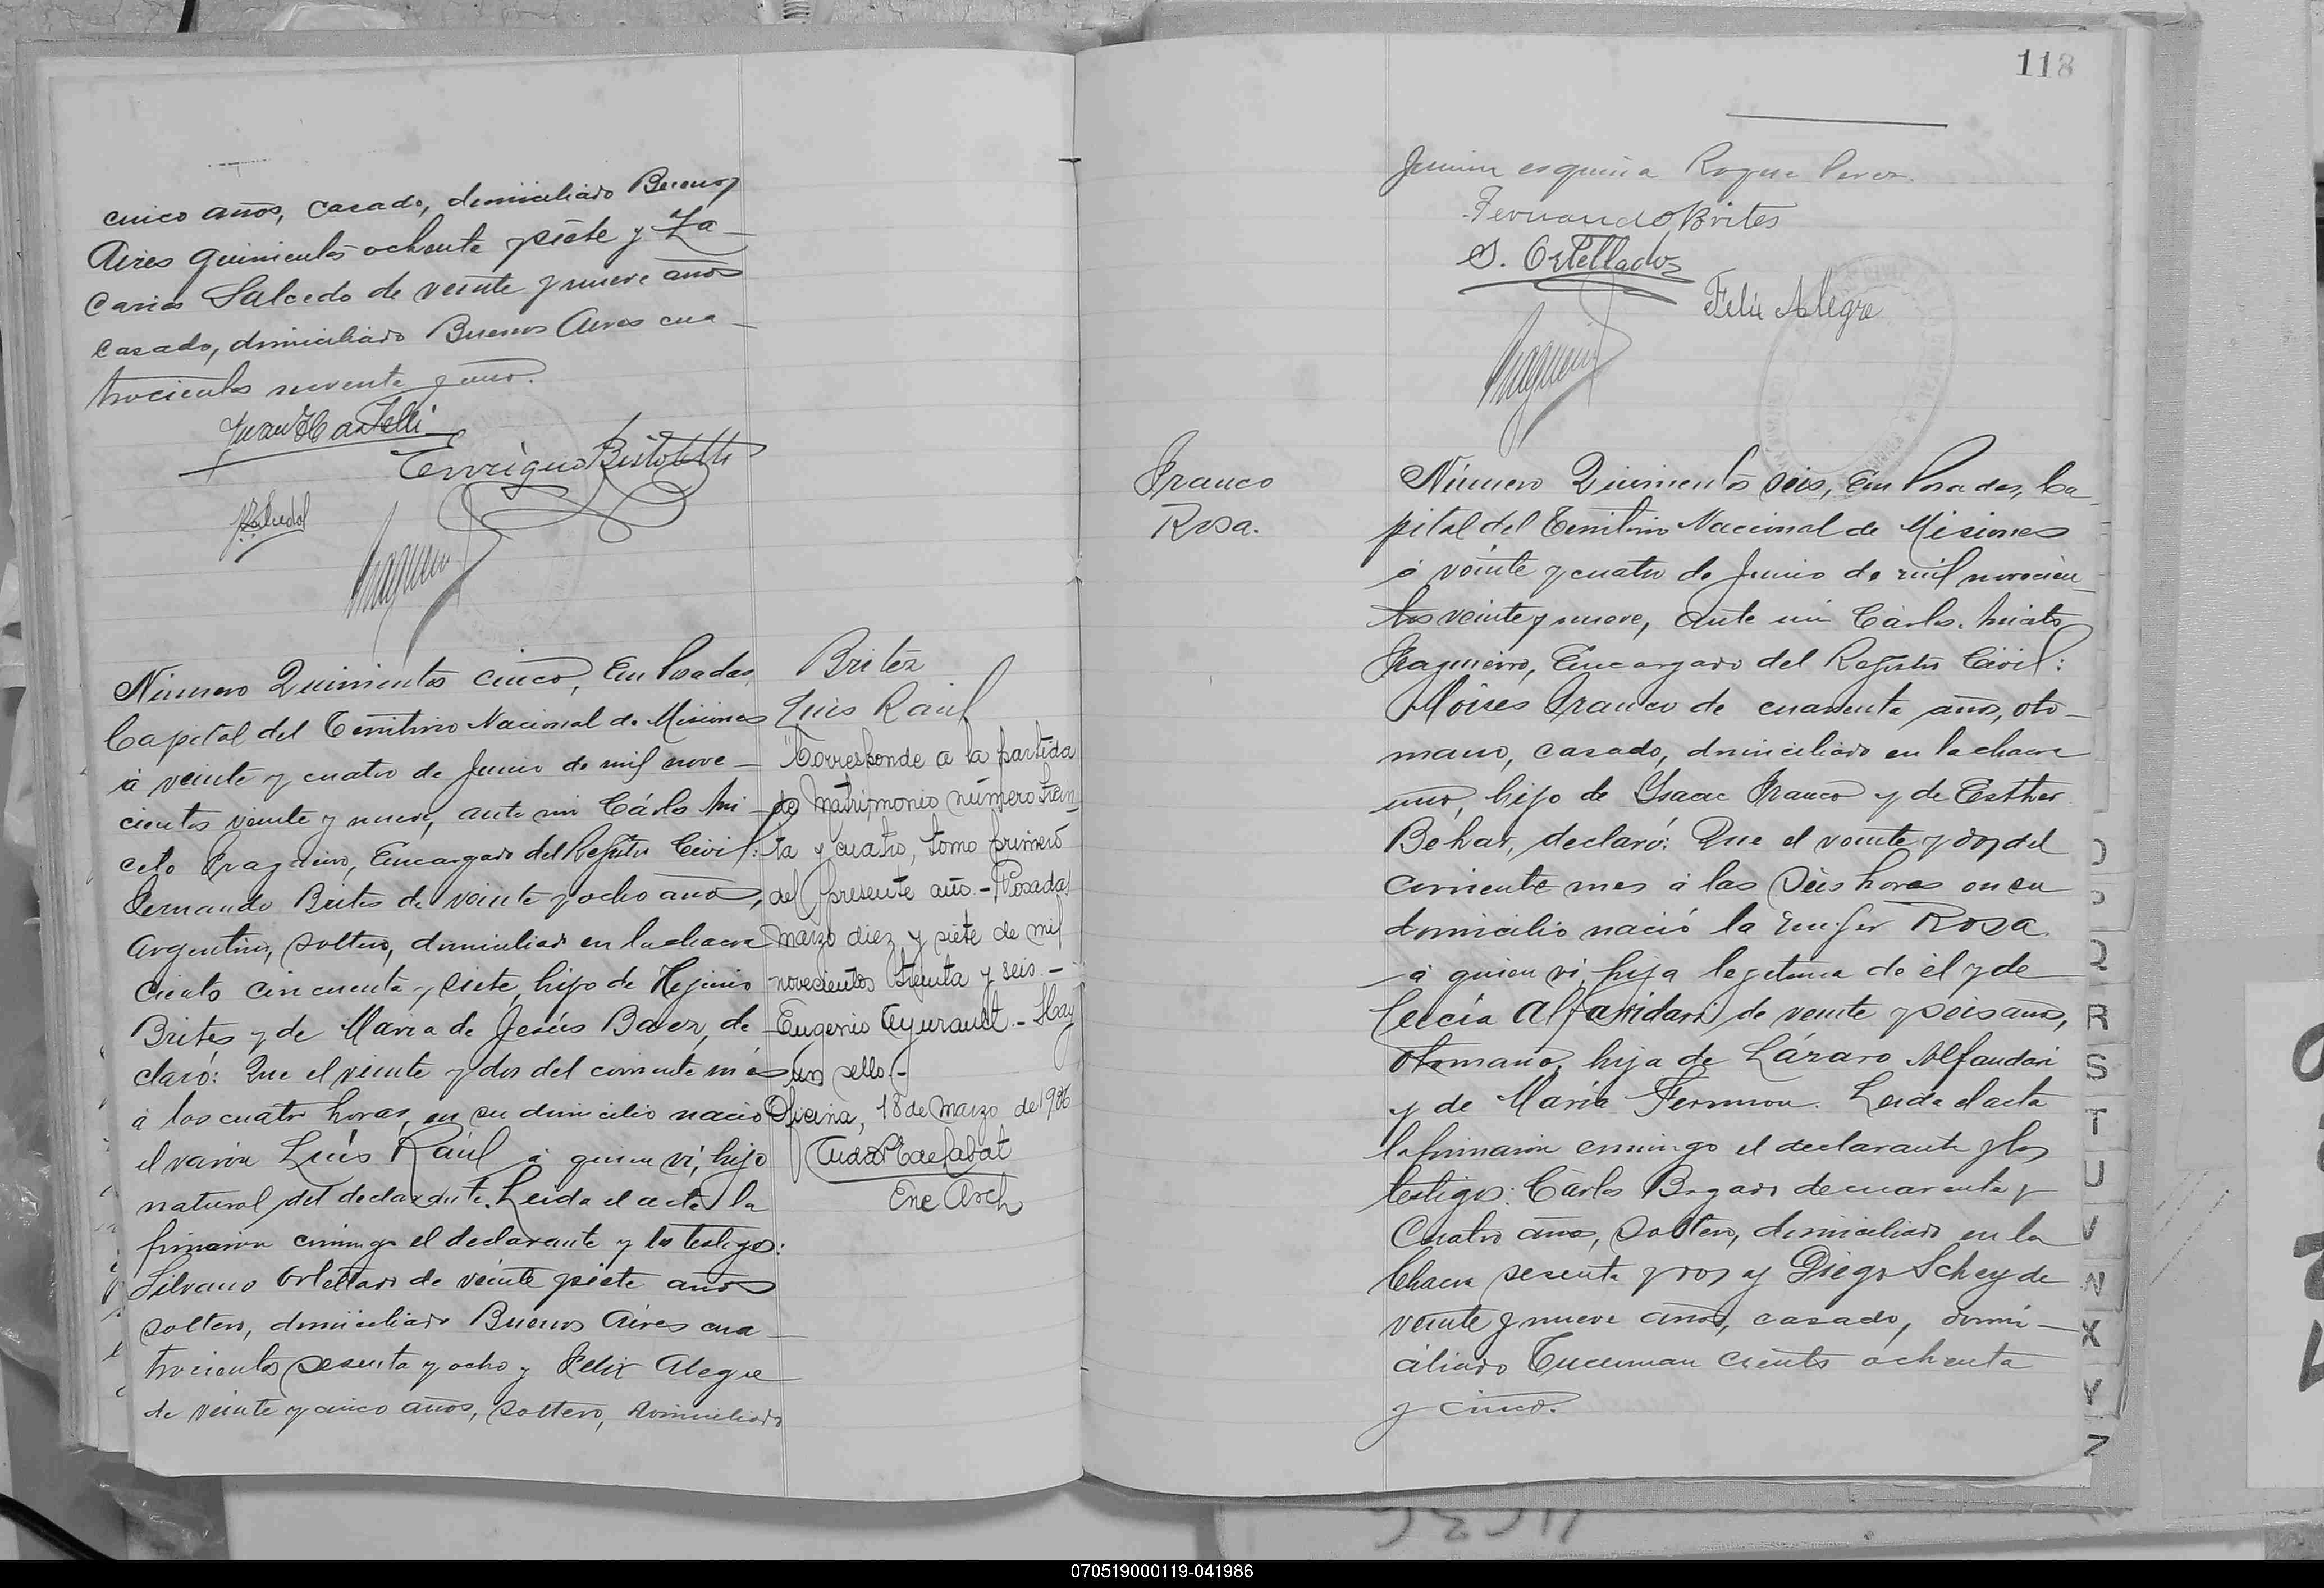 cinco años, casado, domiciliado Buenos
Aires quinientos ochenta y siete y Za_
carias Salcedo de veinte y nueve años
casado, domiciliado Buenos Aires cua_
trocientos noventa y uno.
Enrique Bertolotti
Número Quinientos cinco, En Posadas,
Capital del Territorio Nacional de Misiones
á veinte y cuatro de Junio de mil nove_
cientos veinte y nueve, ante mi Cárlos Ani_
ceto Fragueiro, Encargado del Registro Civil:
Fernando Brites de veinte y ocho años,
Argentino, soltero, domiciliado en la chacra
ciento cincuenta y siete, hijo de Hejinio
Brites y de Maria de Jesús Baez, de
claró: Que el veinte y dos del corriente més
á las cuatro horas, en su domicilio nació
el varón Luís Raúl á quien vi, hijo
natural del declarante. Leida el acta la
firmaron conmigo el declarante y los testigos:
Silvano Ortellado de veinte y siete años
soltero, domiciliado Buenos Aires cua_
trocientos sesenta y ocho y Felix Alegre
de veinte y cinco años, soltero, domiciliado
Britez
Luis Raúl
"Corresponde a la partida
de Matrimonio número trein
ta y cuatro, tomo primero
del presente año.- Posadas
marzo diez y siete de mil
novecientos treinta y seis.-
Eugenio Ayrault.- Hay
un sello.-
Oficina, 18 de Marzo de 1936
Enc Arch
118
Junin esquina Roque Perez.
Fernando Brites
S. Ortellados
Felix Alegre
Franco
Rosa.
Número Quinientos seis, En Posadas, Ca_
pital del Territorio Nacional de Misiones
á veinte y cuatro de Junio de mil novecien_
tos veinte y nueve, ante mi Cárlos Aniceto
Fragueiro, Encargado del Registro Civil:
Moises Franco de cuarenta años, oto_
mano, casado, domiciliado en la chacra
uno, hijo de Isaac Franco y de Esther
Béhar, declaró: Que el veinte y dos del
corriente mes á las seis horas en su
domicilio nació la mujer Rosa
á quien vi, hija legitima de él y de
Alfandari de veinte y seis años,
otomana, hija de Lázaro Alfandari
y de María Leida el acta
la firmaron conmigo el declarante y los
testigos: Cárlos Bogado de cuarenta y
cuatro años, soltero, domiciliado en la
Chacra sesenta y dos y Diego Schey de
veinte y nueve años, casado, domi_
ciliado Tucuman ciento ochenta
y cinco.
Q
R
S
T
U
V
X
Y
Z
070519000119-041986